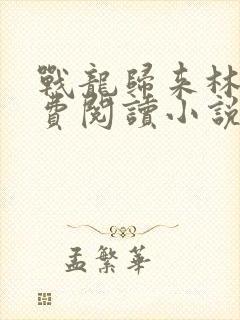 戰龍歸來林
費閱讀小說
孟繁華